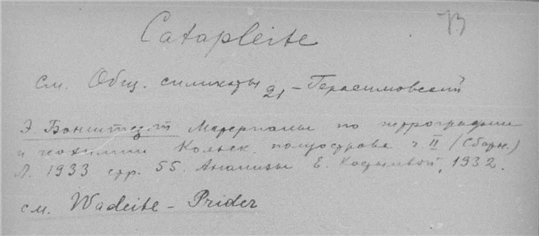 Catapleite
см. Общ. силикаты 21 - Герасимовский
Э. Бонштедт Материалы по петрографии
и геохимии Кольск. полуострова ч. II (Сборн.)
Л. 1933 стр. 55. Анализы Е. 1932.
см. Wadeite - Prider